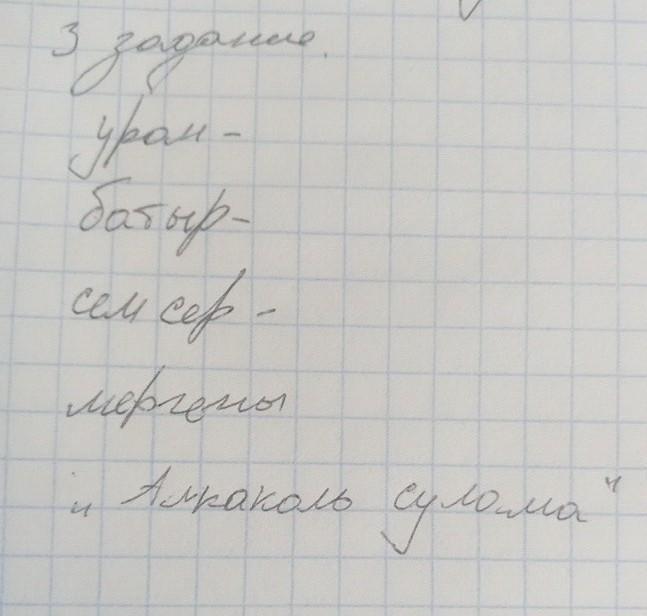 3 задание.
уран -
батыр -
семсер -
мергены
"Алкаколь сулама"